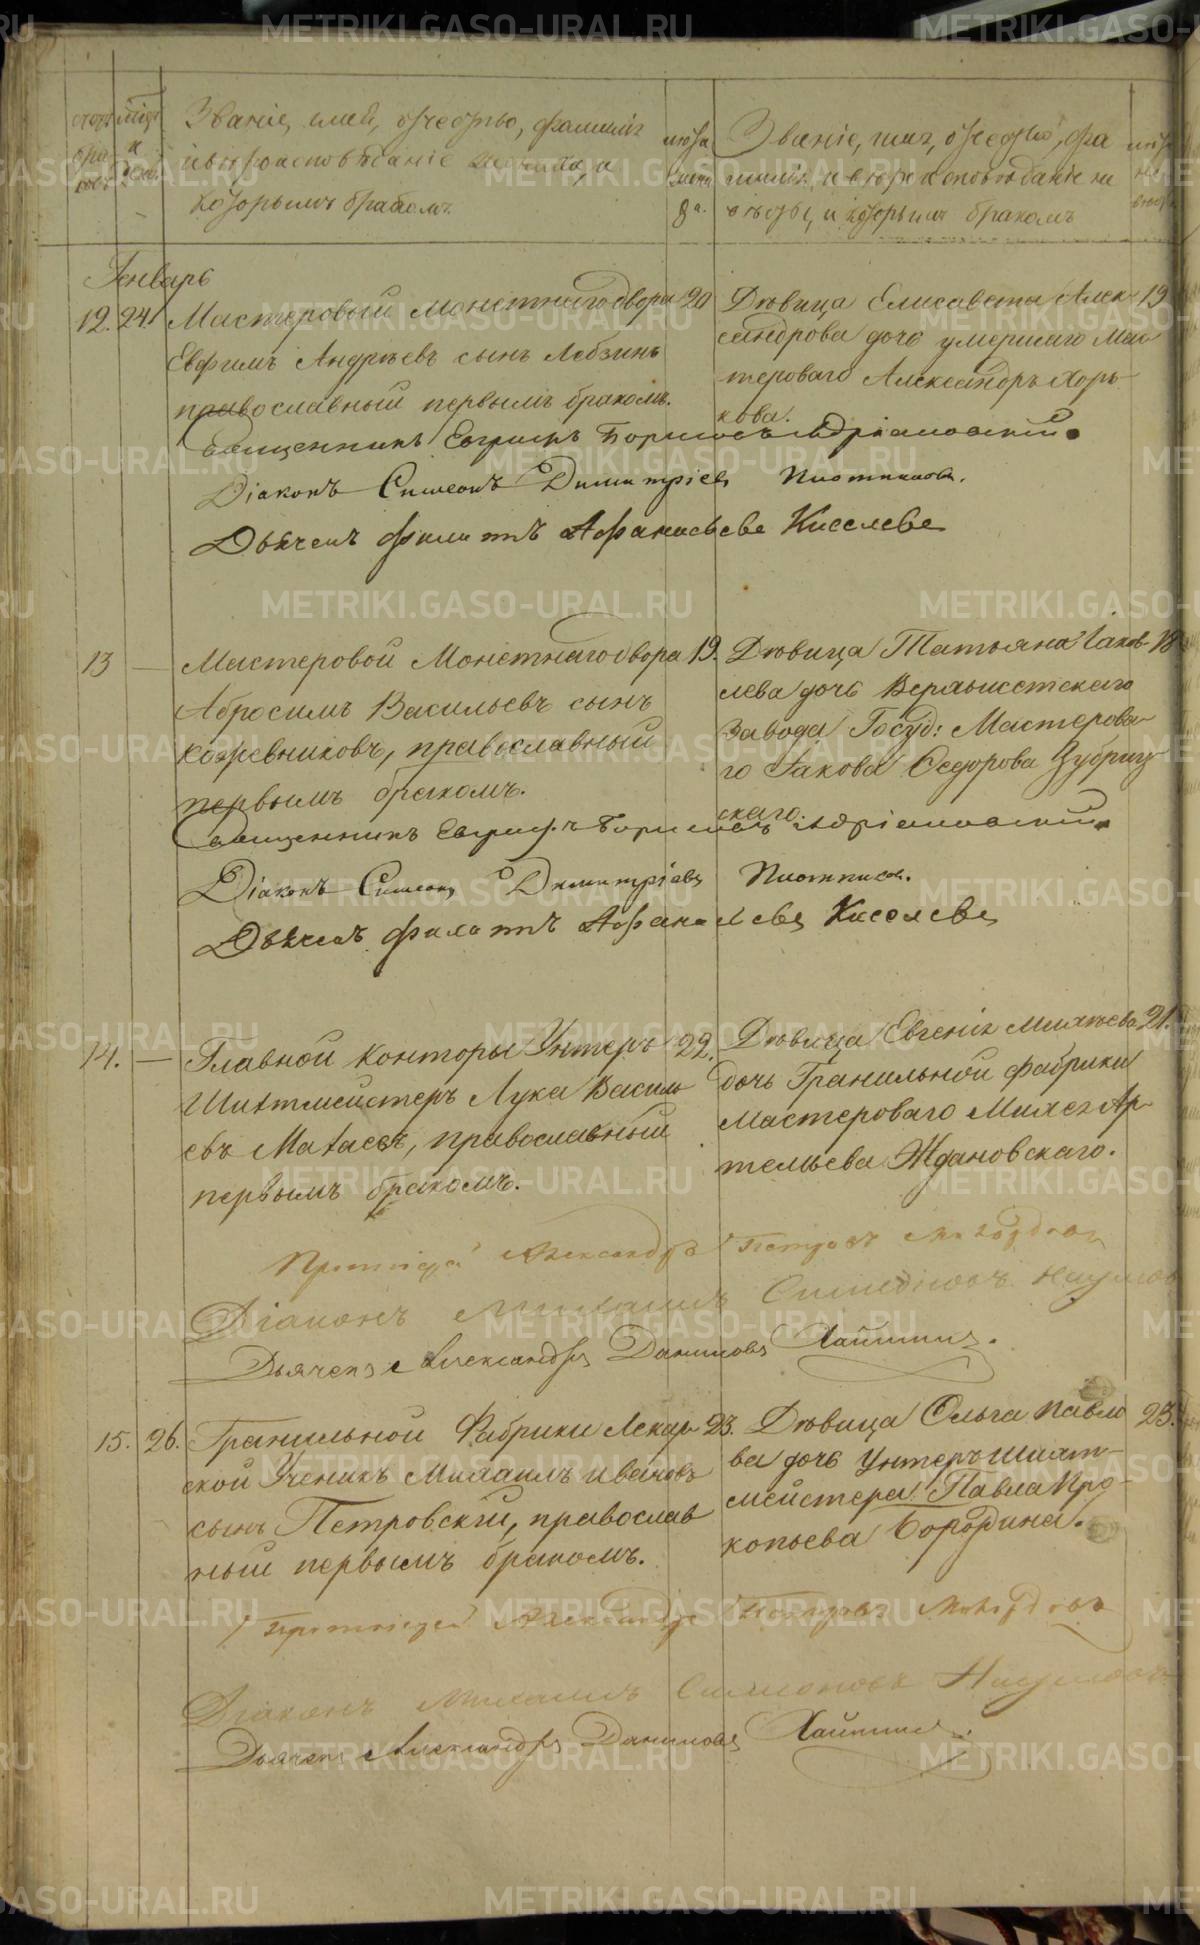 Званіе, имя, отчество, фамилія
и вѣроисповѣданіе жениха, и
которымъ бракомъ
лѣта
жени
ха.
Званіе, имя, отчество, фа
милія и вѣроисповѣданіе не
вѣсты, и которымъ бракомъ
Генварь
12. 24 Мастеровый Монетнаго двора 20
Евфимъ Андреевъ сынъ Лобзинъ
православный первымъ бракомъ.
Дѣвица Елисавета Алек- 19
сандрова дочь умершаго Мас
тероваго Александра Хорь-
кова.
Священникъ Евграфъ Борисовъ Адріановскій.
Діаконъ Симеонъ Димитріевъ Плотниковъ.
Дьячекъ Филатъ Афанасьевъ Киселевъ
13 — Мастеровой Монетнаго двора 19.
Абросимъ Васильевъ сынъ
Кожевниковъ, православный
первымъ бракомъ.
Дѣвица Татьяна Іаков- 18
лева дочь Верхъисетскаго
Завода Госуд: Мастерова-
го Іакова Федорова Зубриц
скаго.
Священникъ Евграфъ Борисовъ Адріановскій.
Діаконъ Симеонъ Димитріевъ Плотниковъ.
Дьячекъ Филатъ Афанасьевъ Киселевъ
14. — Главной Конторы Унтеръ 22.
Шихтмейстеръ Лука Василь
евъ Матаевъ, православный
первымъ бракомъ.
Дѣвица Евгенія Михеева 21.
дочь Гранильной фабрики
Мастероваго Михея Ар-
темьева Ждановскаго.
Протоіерей Александръ Петровъ
Діаконъ Михаилъ Симеоновъ Наумовъ
Дьячекъ Александръ Даниловъ
15. 26. Гранильной Фабрики Лекар- 23.
ской Ученикъ Михаилъ Ивановъ
сынъ Петровскій, православ
ный первымъ бракомъ.
Дѣвица Ольга Павло 23.
ва дочь Унтеръ Шихт-
мейстера Павла Про-
копьева Бородина.
Протоіерей Александръ Петровъ
Діаконъ Михаилъ Симеоновъ Наумовъ
Дьячекъ Александръ Даниловъ
METRIKI.GASO-URAL.RU